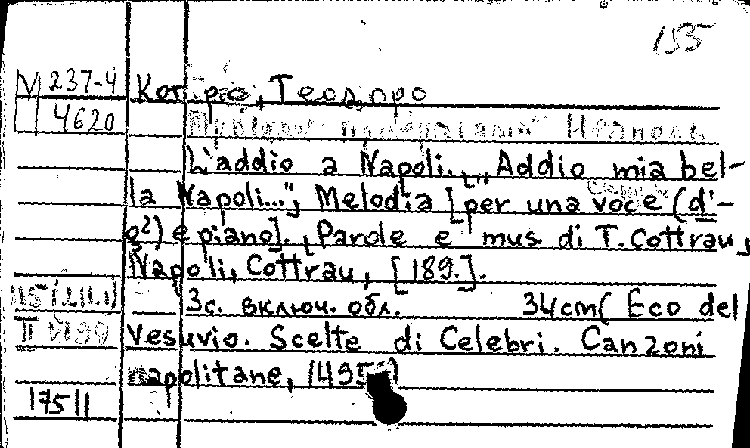 155
М 237-4
4620
Коттрао, Теодоро
L'addio a Napoli. „Addio mia bel-
la Napoli...", Melodia [per una voce (d'-
e²) e piano]. Parole e mus. di T. Cottrau,
Napoli, Cottrau, [189.].
3с. включ. обл. 34cm (Eco del
Vesuvio. Scelte di Celebri. Canzoni
napolitane,
17511